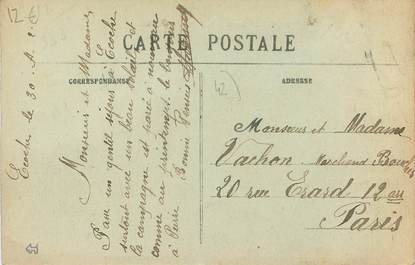 12€
CARTE POSTALE
CORRESPONDANCE
ADRESSE
42
Ecoche le 30
Monsieur et Madame,
Passe un gentil séjour à Ecoche
surtout avec un beau soleil et
la campagne est parée à nouveau
comme au printemps. le bonjour
à Pierre
Bonne
Monsieur et Madame
Vachon Marchand
20 rue Erard 12
Paris